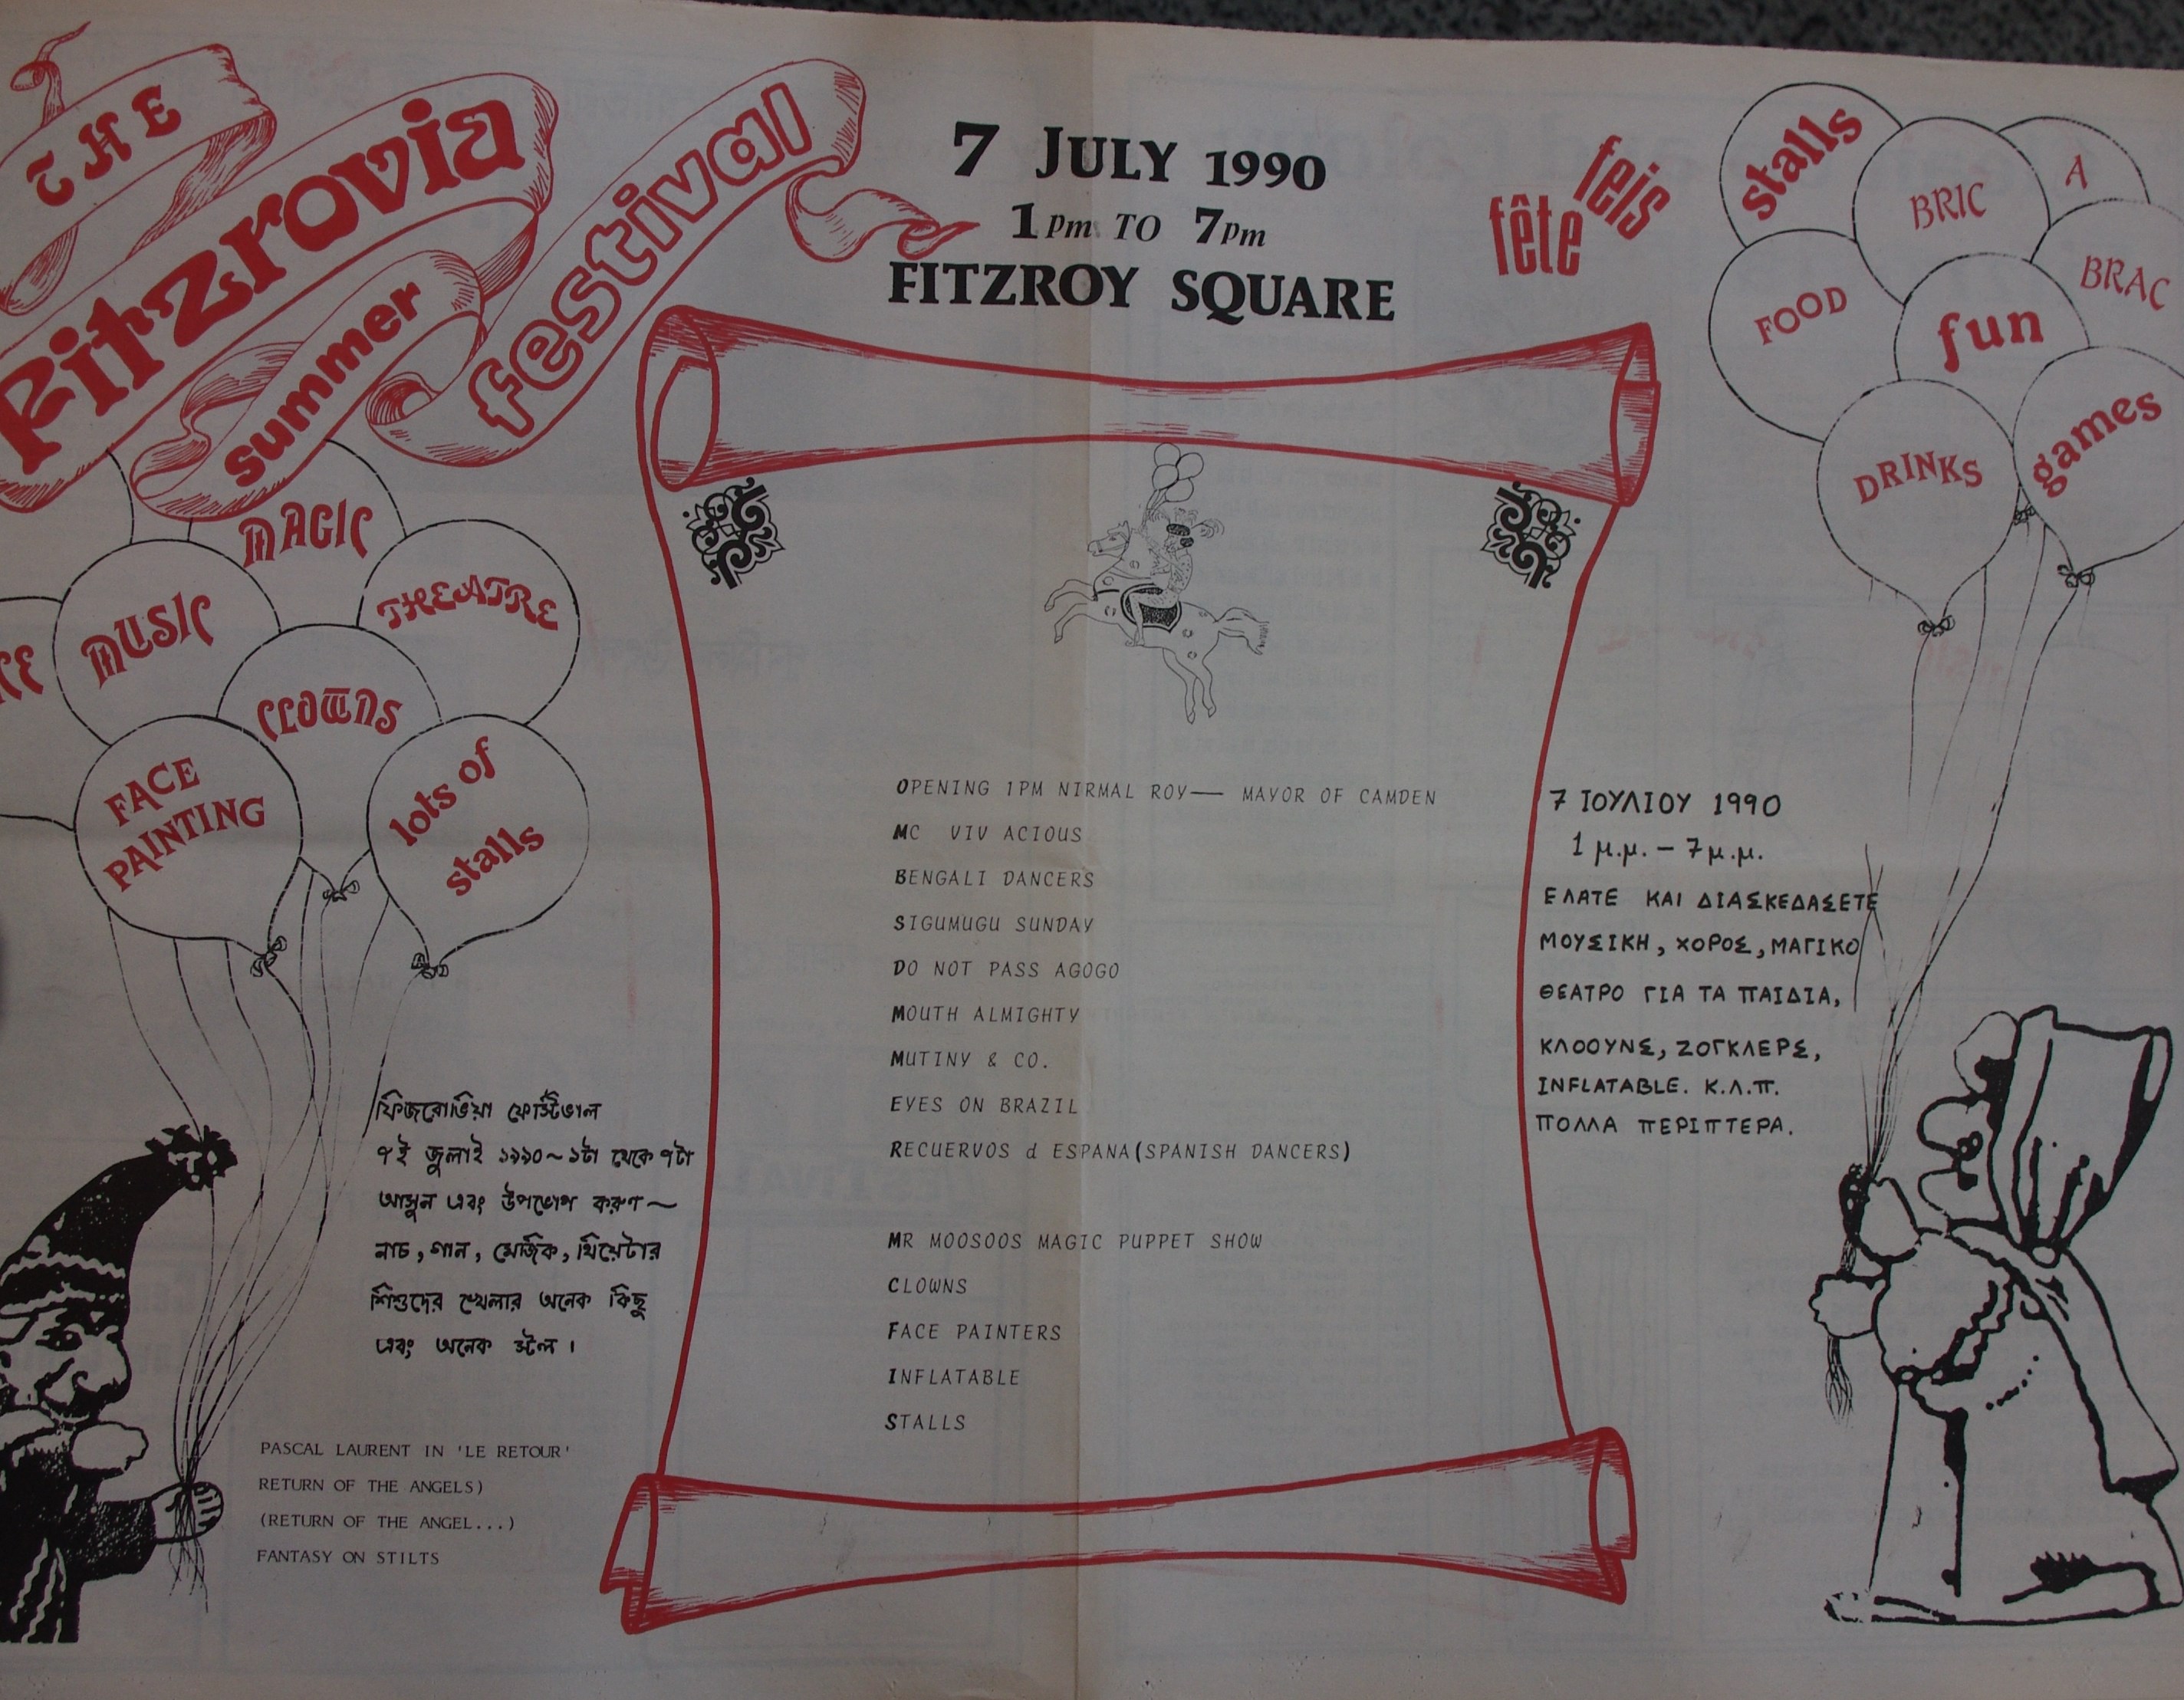 THE
Fitzrovia
summer
festival
7 JULY 1990
1pm TO 7pm
FITZROY SQUARE
fête
feis
stalls
BRIC
A
BRAC
FOOD
fun
DRINKS
games
MAGIC
MUSIC
THEATRE
CLOWNS
FACE
PAINTING
lots of
stalls
OPENING 1PM NIRMAL ROY— MAYOR OF CAMDEN
MC VIV ACIOUS
BENGALI DANCERS
SIGUMUGU SUNDAY
DO NOT PASS AGOGO
MOUTH ALMIGHTY
MUTINY & CO.
EYES ON BRAZIL
RECUERVOS d ESPANA(SPANISH DANCERS)
MR MOOSOOS MAGIC PUPPET SHOW
CLOWNS
FACE PAINTERS
INFLATABLE
STALLS
7 ΙΟΥΛΙΟΥ 1990
1 μ.μ. – 7 μ.μ.
ΕΛΑΤΕ ΚΑΙ ΔΙΑΣΚΕΔΑΣΕΤΕ
ΜΟΥΣΙΚΗ, ΧΟΡΟΣ, ΜΑΓΙΚΟ
ΘΕΑΤΡΟ ΓΙΑ ΤΑ ΠΑΙΔΙΑ,
ΚΛΟΟΥΝΣ, ΖΟΓΚΛΕΡΣ,
INFLATABLE. Κ.Λ.Π.
ΠΟΛΛΑ ΠΕΡΙΠΤΕΡΑ.
ফিজরোভিয়া ফেস্টিভাল
৭ই জুলাই ১৯৯০~১টা থেকে ৭টা
আসুন এবং উপভোগ করুণ~
নাচ, গান, মেজিক, থিয়েটার
শিশুদের খেলার অনেক কিছু
এবং অনেক স্টল।
PASCAL LAURENT IN 'LE RETOUR'
RETURN OF THE ANGELS)
(RETURN OF THE ANGEL...)
FANTASY ON STILTS